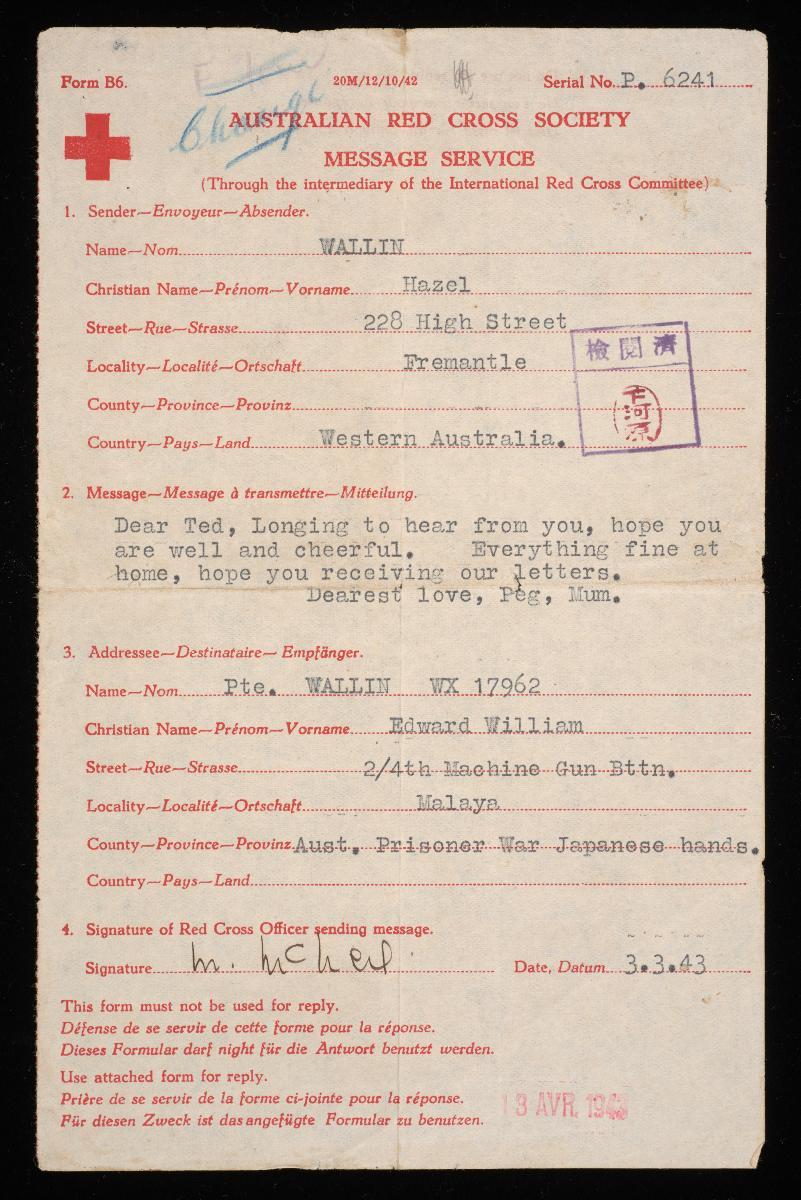 Form B6.
20M/12/10/42
Serial No. P. 6241
Changi
AUSTRALIAN RED CROSS SOCIETY
MESSAGE SERVICE
(Through the intermediary of the International Red Cross Committee)
1. Sender—Envoyeur—Absender.
Name—Nom WALLIN
Christian Name—Prénom—Vorname Hazel
Street—Rue—Strasse 228 High Street
Locality—Localité—Ortschaft Fremantle
County—Province—Provinz
Country—Pays—Land Western Australia.
檢閲濟
千河原
2. Message—Message à transmettre—Mitteilung.
Dear Ted, Longing to hear from you, hope you
are well and cheerful. Everything fine at
home, hope you receiving our letters.
Dearest love, Peg, Mum.
3. Addressee—Destinataire—Empfänger.
Name—Nom Pte. WALLIN WX 17962
Christian Name—Prénom—Vorname Edward William
Street—Rue—Strasse 2/4th Machine Gun Bttn.
Locality—Localité—Ortschaft Malaya
County—Province—Provinz Aust. Prisoner War Japanese hands.
Country—Pays—Land
4. Signature of Red Cross Officer sending message.
Signature M. McNeil Date, Datum 3.3.43
This form must not be used for reply.
Défense de se servir de cette forme pour la réponse.
Dieses Formular darf night für die Antwort benutzt werden.
Use attached form for reply.
Prière de se servir de la forme ci-jointe pour la réponse.
Für diesen Zweck ist das angefügte Formular zu benutzen.
13 AVR. 1943